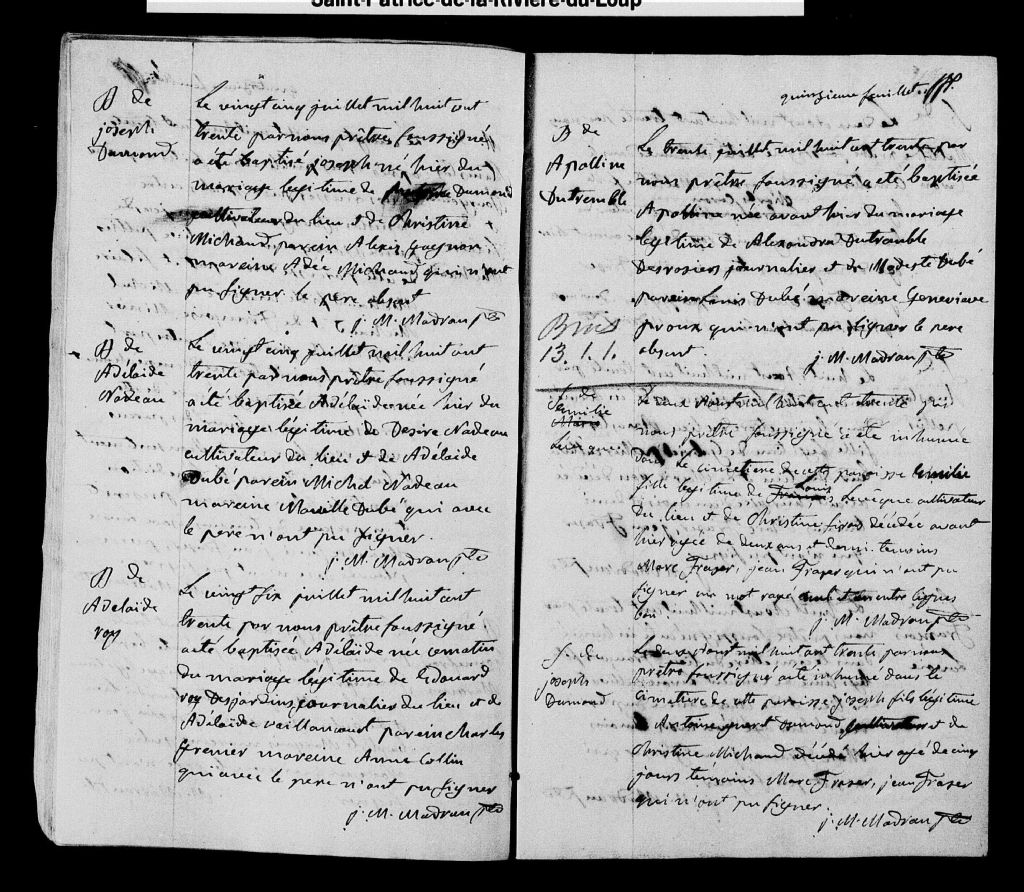 Saint-Patrice-de-la-Rivière-du-Loup
B de
joseph
Dumond
Le vingt cinq juillet mil huit cent
trente par nous prêtre soussigné
a été baptisé joseph né hier du
mariage legitime de Dumond
cultivateur du lieu et de Christine
Michaud parain Alexis gagnon
maraine Adée Michaud qui n'ont
pu signer le pere absent
j. M. Madran ptre
B de
Adélaide
Nadeau
Le vingt cinq juillet mil huit cent
trente par nous prêtre soussigné
a été baptisée Adélaïde née hier du
mariage legitime de Desire Nadeau
cultivateur du lieu et de Adélaide
Dubé parain Michel Nadeau
maraine Dubé qui avec
le pere n'ont pu signer.
j. M. Madran ptre
B de
Adelaide
roy
Le vingt six juillet mil huit cent
trente par nous prêtre soussigné
a été baptisée Adélaide née ce matin
du mariage légitime de Edouard
roy Desjardins journalier du lieu et de
Adélaide vaillancourt parain charles
grenier maraine Annie Collin
qui avec le pere n'ont pu signer
j. M. Madran ptre
quinzieme feuillet.
B de
Apolline
Dutremble
Le trente juillet mil huit cent trente par
nous prêtre soussigné a été baptisée
Apolline née avant hier du mariage
legitime de Alexandre Dutremble
Desrosiers journalier et de Modeste Dubé
parain Louis Dubé maraine Genevieve
proux qui n'ont pu signer le pere
absent.
j. M. Madran ptre
13. 1. 1.
S de
Emilie
Le deux Aoust mil huit cent trente par
nous prêtre soussigné a été inhumé
dans le cimetiere de cette paroisse Emilie
fille legitime de Louis Levêque cultivateur
du lieu et de Christine decédée avant
hier agée de deux ans et demi. temoins
Marc Fraser, jean Fraser qui n'ont pu
signer un mot rayé nul et un entre lignes
bon.
j. M. Madran ptre
S. de
joseph
Dumond
Le deux Aoust mil huit cent trente par nous
prêtre soussigné a été inhumé dans le
cimetiere de cette paroisse joseph fils légitime
Antoine Dumond et de
Christine Michaud décédé hier agé de cinq
jours temoins Marc Fraser, jean Fraser
qui n'ont pu signer.
j. M. Madran ptre